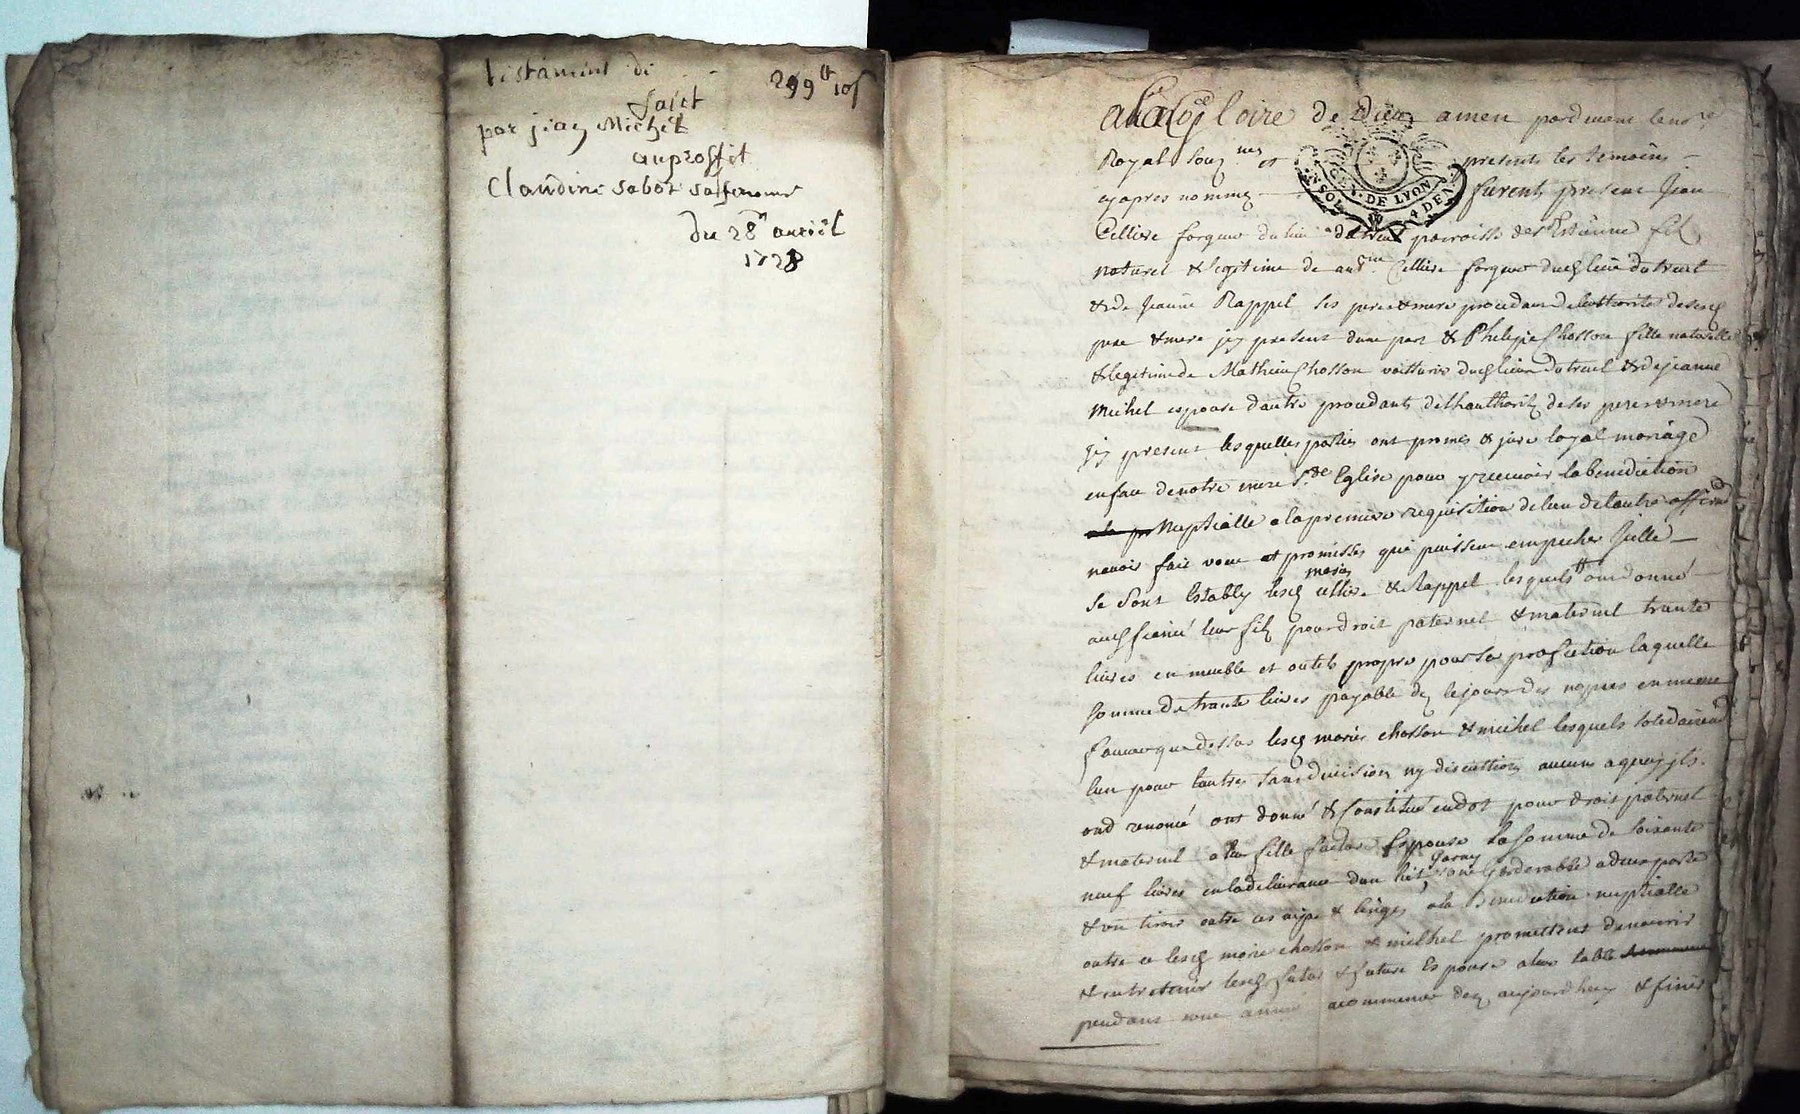 testament de
299tt 10s
faict
par jean Michel
auproffit
Claudine sabot sa femme
du 28e avril
1728
a la Gloire de Dieu amen pardevant le nore
Royal souz.nez et presents les temoins
cy apres nommez furent present Jean
Celliere forgeur du lieu du treuil parroisse de St Estienne filz
naturel & legitime de Celliere forgeur dud lieu du treuil
& de Jeanne Rappel ses pere & mere procedant de lauthorité de sesd
pere & mere icy present dune part & Philipie Chosson fille naturelle
& legitime de Mathieu Chosson voitturier dud lieu du treuil & de jeanne
Michel espouse dautre procedante de lhauthorité de ses pere & mere
icy present lesquelles parties ont promis & juré loyal mariage
en face de notre mere Ste Eglise pour y recevoir la benediction
nuptialle a la premiere requisition de lun de lautre
navoir fait voeu et promisses qui puissent empecher Icelle
se sont establys lesd mariez Celliere & Rappel lesquels ont donné
aud fiancé leur filz pour droit paternel & maternel trante
livres en meuble et outils propre pour sa profection laquelle
somme de trante livres payable dez le jour des nopces en mesme
faveur que dessus lesd mariés chosson & michel lesquels solidairement
lun pour lautre sans division ny discution aucune a quoy ils
ond renoncé ont donné & constitué en dot pour droit paternel
& maternel a leur fille future Espouse la somme de soixante
neuf livres en la delivrance dun lict garny une garderobbe a deux porte
& un tiroir outre ses nipe & linges a la benediction nuptialle
outre ce lesd marié chosson & michel promettent de nourrir
& entretenir lesd futur & future Espouse a leur table
pendant une année a commencer dez aujourdhuy & finir
SOL
GEN. DE LYON
4 DEN.